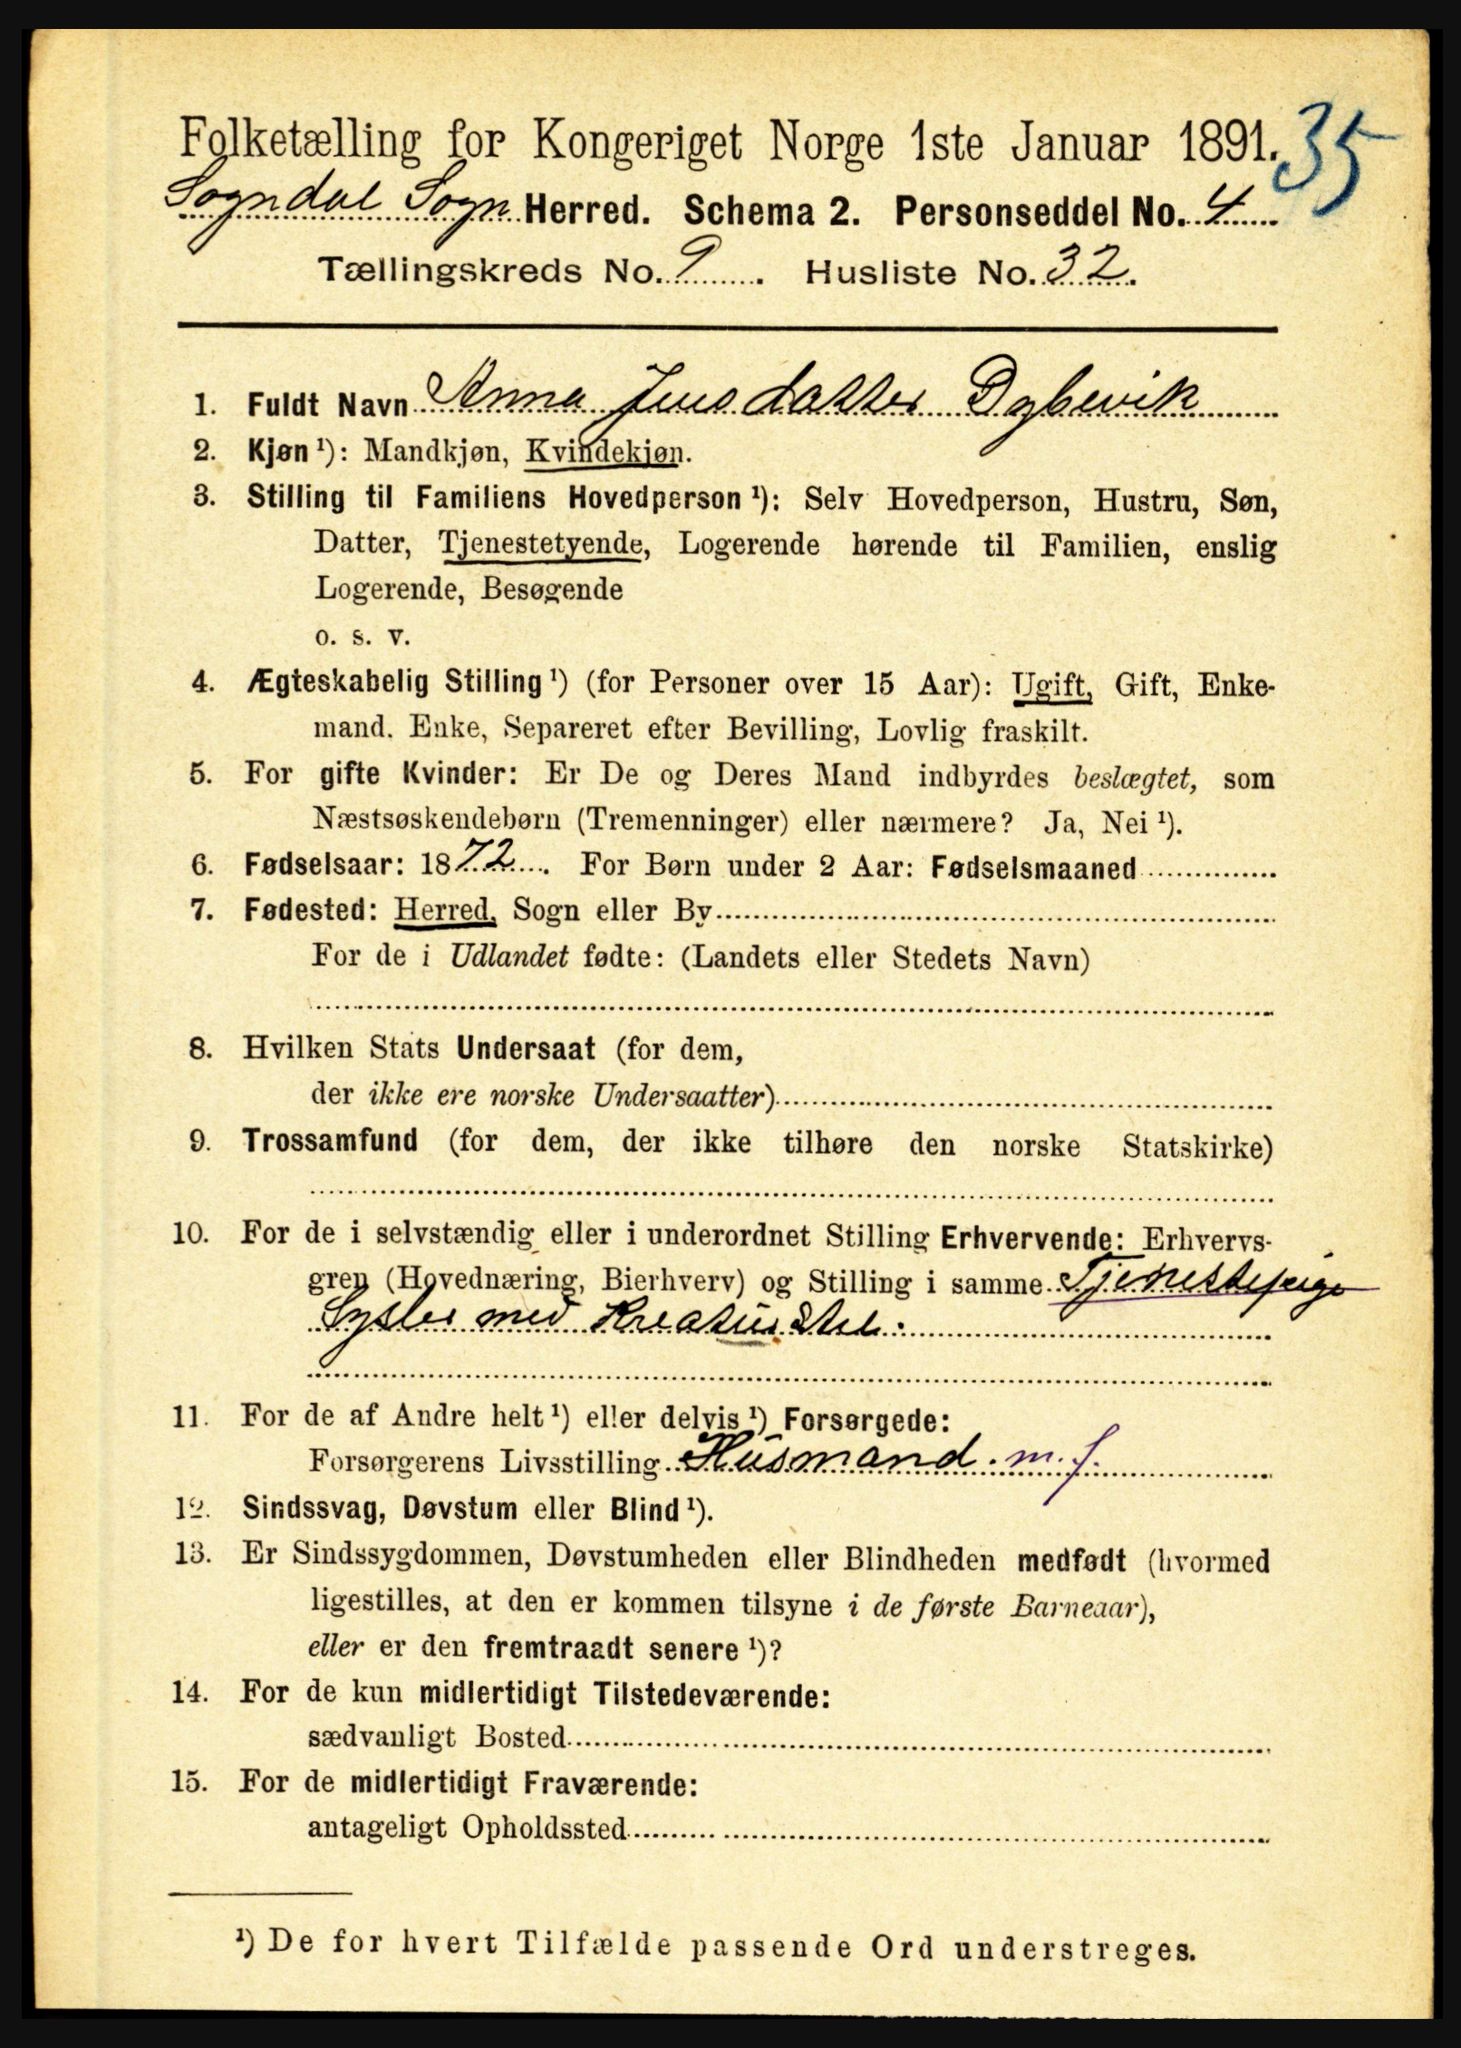 Folketælling for Kongeriget Norge 1ste Januar 1891. 35
Sogndal Sogn Herred. Schema 2. Personseddel No. 4
Tællingskreds No. 9. Husliste No. 32.
1. Fuldt Navn Anna Jensdatter Dybevik
2. Kjøn ¹): Mandkjøn, Kvindekjøn.
3. Stilling til Familiens Hovedperson ¹): Selv Hovedperson, Hustru, Søn,
Datter, Tjenestetyende, Logerende hørende til Familien, enslig
Logerende, Besøgende
o. s. v.
4. Ægteskabelig Stilling ¹) (for Personer over 15 Aar): Ugift, Gift, Enke-
mand. Enke, Separeret efter Bevilling, Lovlig fraskilt.
5. For gifte Kvinder: Er De og Deres Mand indbyrdes beslægtet, som
Næstsøskendebørn (Tremenninger) eller nærmere? Ja, Nei ¹).
6. Fødselsaar: 1872. For Børn under 2 Aar: Fødselsmaaned
7. Fødested: Herred, Sogn eller By
For de i Udlandet fødte: (Landets eller Stedets Navn)
8. Hvilken Stats Undersaat (for dem,
der ikke ere norske Undersaatter)
9. Trossamfund (for dem, der ikke tilhøre den norske Statskirke)
10. For de i selvstændig eller i underordnet Stilling Erhvervende: Erhvervs-
gren (Hovednæring, Bierhverv) og Stilling i samme Tjenestepige
Sysler med Kreaturstel.
11. For de af Andre helt ¹) eller delvis ¹) Forsørgede:
Forsørgerens Livsstilling Husmand. m. j.
12. Sindssvag, Døvstum eller Blind ¹).
13. Er Sindssygdommen, Døvstumheden eller Blindheden medfødt (hvormed
ligestilles, at den er kommen tilsyne i de første Barneaar),
eller er den fremtraadt senere ¹)?
14. For de kun midlertidigt Tilstedeværende:
sædvanligt Bosted
15. For de midlertidigt Fraværende:
antageligt Opholdssted
¹) De for hvert Tilfælde passende Ord understreges.